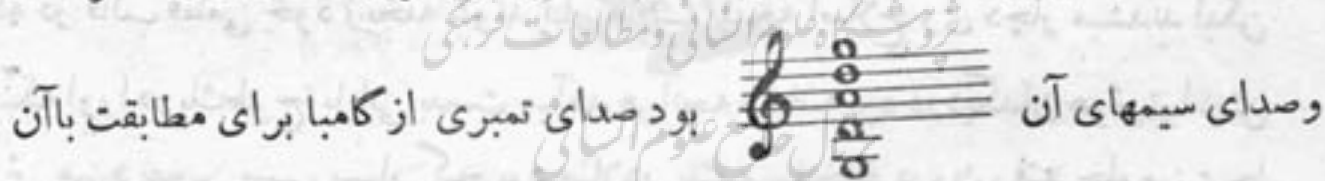 پژوهشگاه علوم انسانی و مطالعات فرهنگی
وصدای سیمهای آن بود صدای تمبری از گامبا برای مطابقت باآن
جامع علوم انسانی